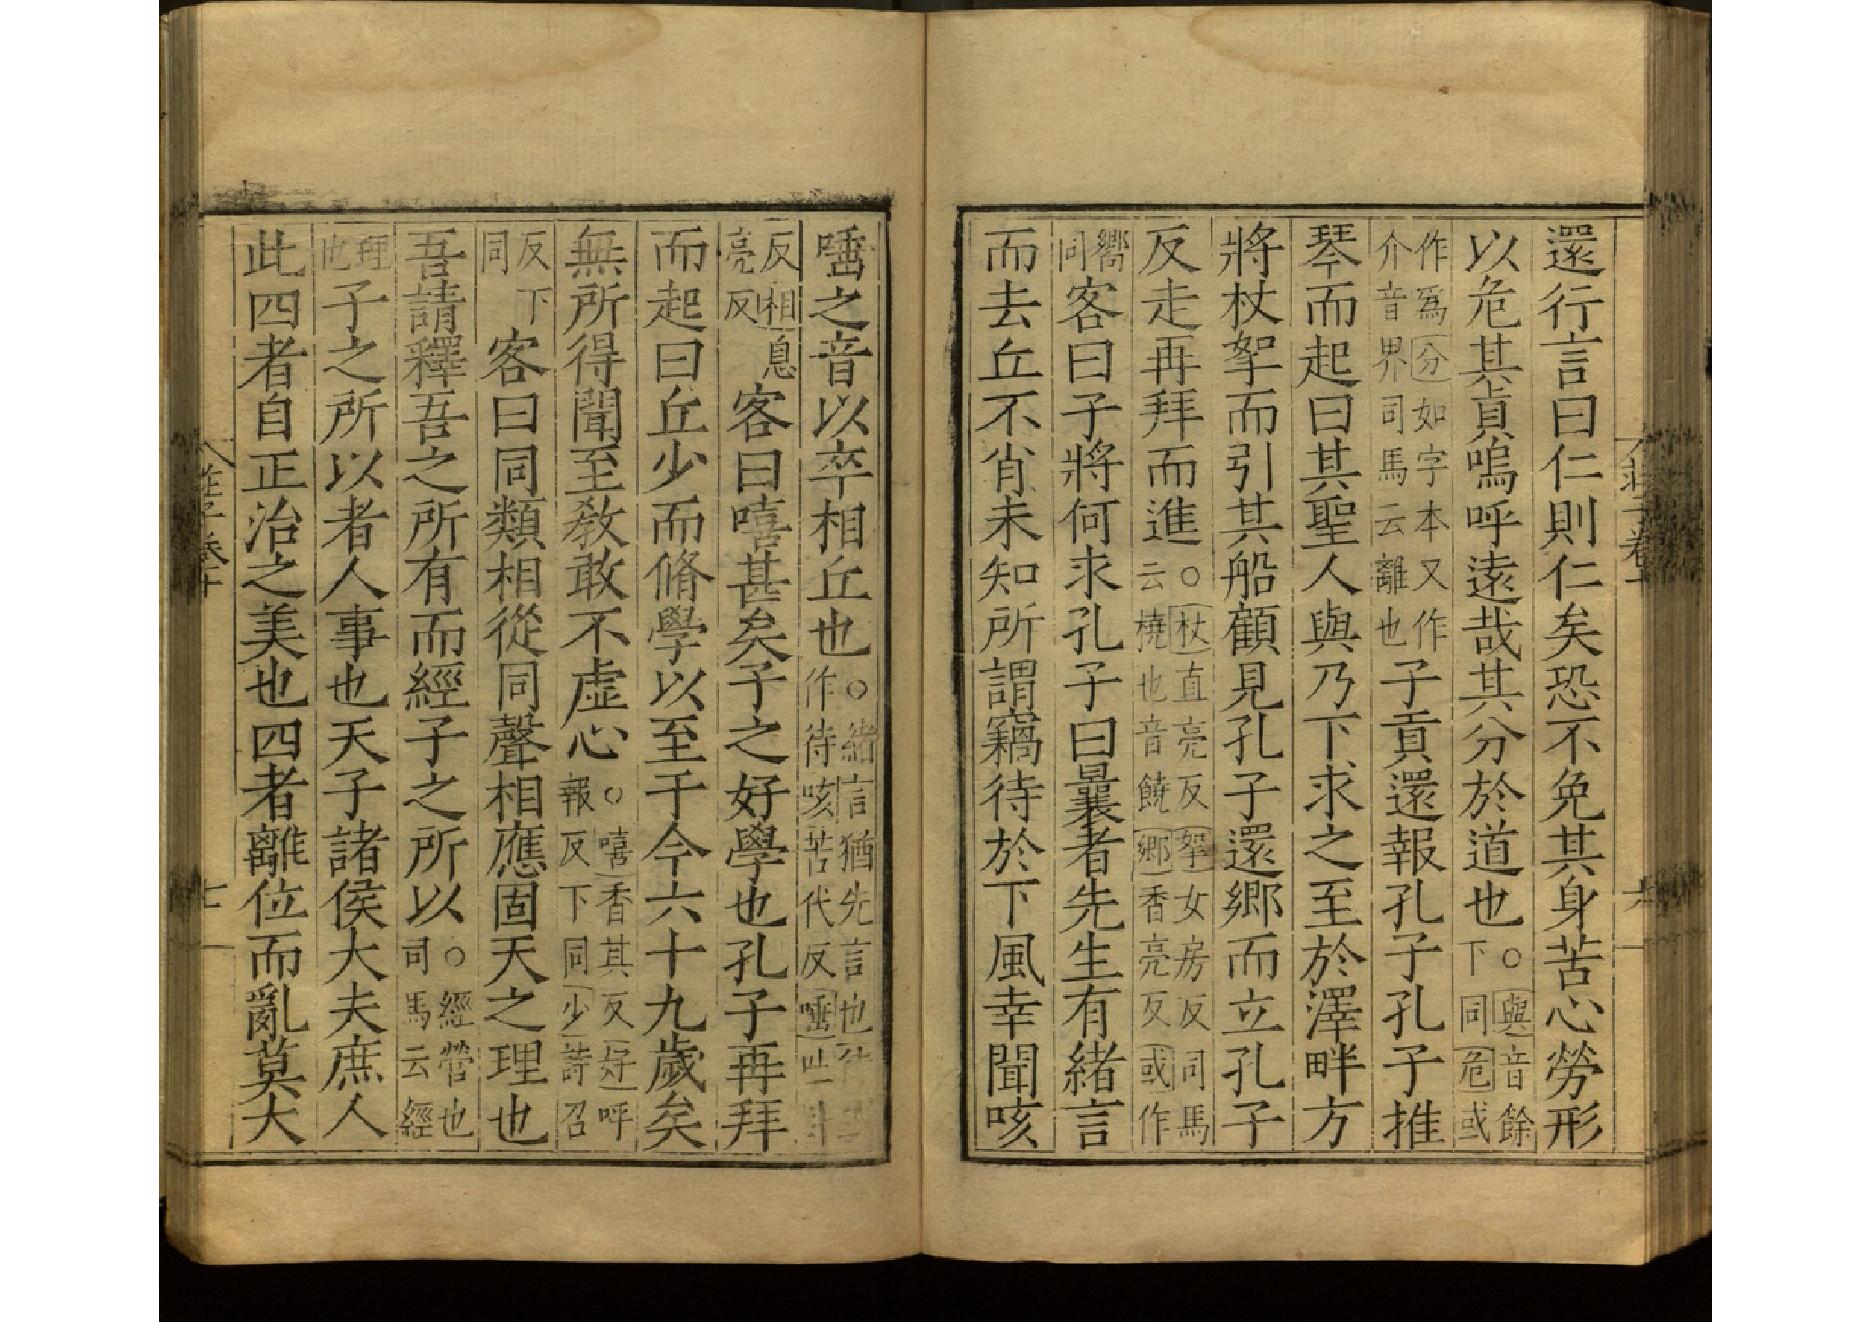 還行言曰仁則仁矣恐不免其身苦心勞形
以危其真嗚呼遠哉其分於道也○與音餘下同危或
作爲分如字本又作介音界司馬云離也子貢還報孔子孔子推
琴而起曰其聖人與乃下求之至於澤畔方
將杖挐而引其船顧見孔子還鄉而立孔子
反走再拜而進○杖直亮反挐女房反司馬云橈也音饒鄉香亮反或作
嚮同客曰子將何求孔子曰曩者先生有緒言
而去丘不肖未知所謂竊待於下風幸聞咳
唾之音以卒相丘也○緒言猶先言也作待咳苦代反唾吐
反相息亮反客曰嘻甚矣子之好學也孔子再拜
而起曰丘少而脩學以至于今六十九歲矣
無所得聞至敎敢不虛心○嘻香其反好呼報反下同少詩召
反下同客曰同類相從同聲相應固天之理也
吾請釋吾之所有而經子之所以○經營也司馬云經
理也子之所以者人事也天子諸侯大夫庶人
此四者自正治之美也四者離位而亂莫大
莊子卷十
六
莊子卷十
七